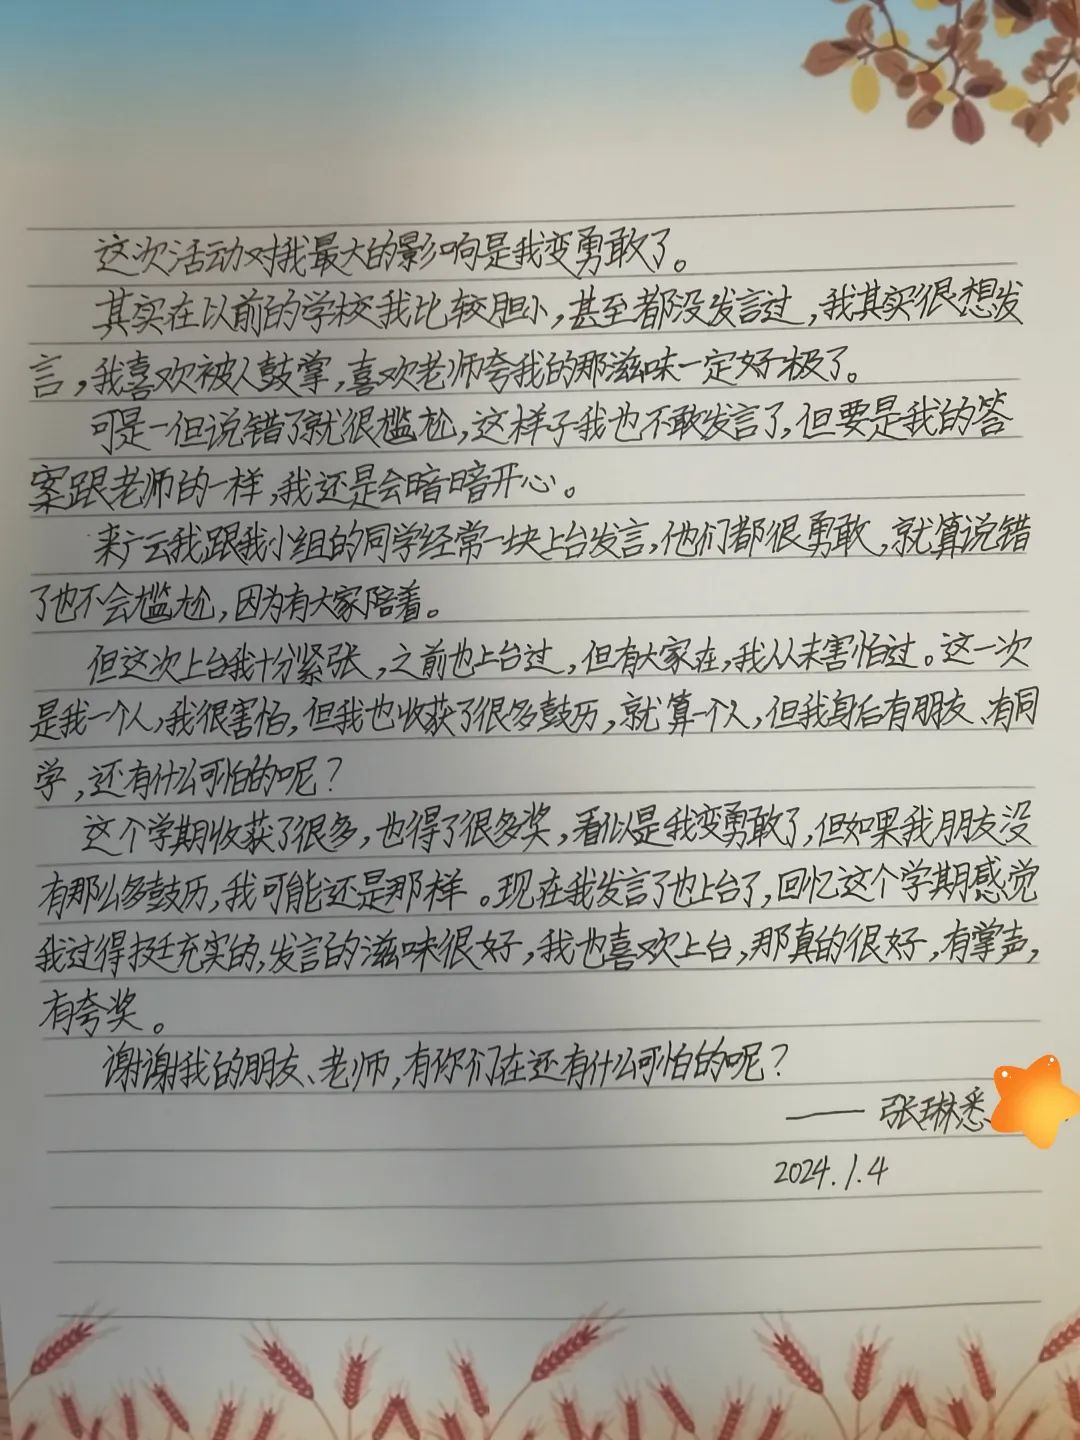 这次活动对我最大的影响是我变勇敢了。
其实在以前的学校我比较胆小,甚至都没发言过,我其实很想发
言,我喜欢被人鼓掌,喜欢老师夸我的那滋味一定好极了。
可是一但说错了就很尴尬,这样子我也不敢发言了,但要是我的答
案跟老师的一样,我还是会暗暗开心。
来广云我跟我小组的同学经常一块上台发言,他们都很勇敢,就算说错
了也不会尴尬,因为有大家陪着。
但这次上台我十分紧张,之前也上台过,但有大家在,我从未害怕过。这一次
是我一个人,我很害怕,但我也收获了很多鼓历,就算一个人,但我身后有朋友、有同
学,还有什么可怕的呢?
这个学期收获了很多,也得了很多奖,看似是我变勇敢了,但如果我朋友没
有那么多鼓历,我可能还是那样。现在我发言了也上台了,回忆这个学期感觉
我过得挺充实的,发言的滋味很好,我也喜欢上台,那真的很好,有掌声,
有夸奖。
谢谢我的朋友、老师,有你们在还有什么可怕的呢?
——张琳悉
2024.1.4